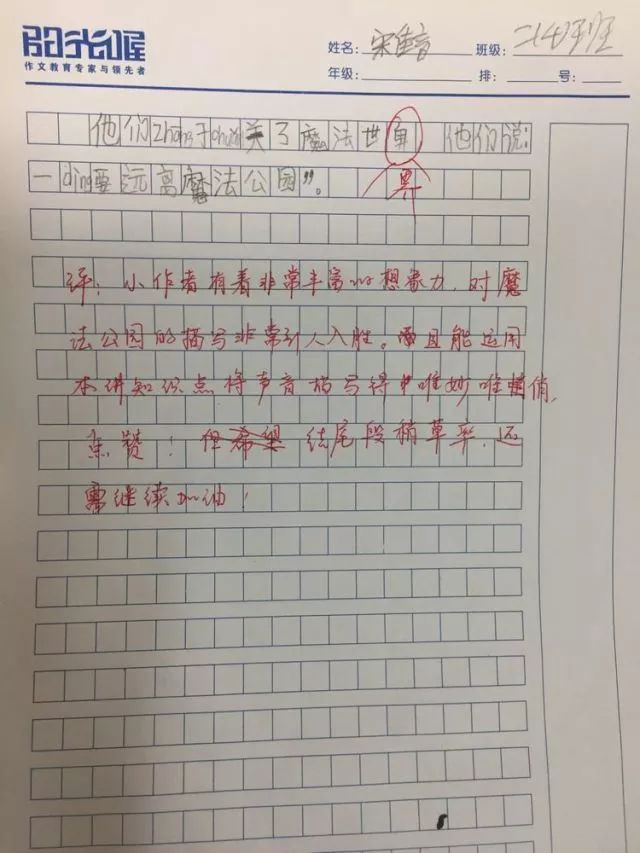 阳光喔
作文教育专家与领先者
姓名: 宋佳音 班级: 二(4)班
年级: 排: 号:
他们zhong于chuang关了魔法世 他们说:
界
一ding要远离魔法公园”。
评:小作者有着非常丰富的想象力,对魔
法公园的描写非常引人入胜。而且能运用
本讲知识点将声音描写得唯妙唯俏,
点赞!但希望结尾段稍草率,还
需继续加油!